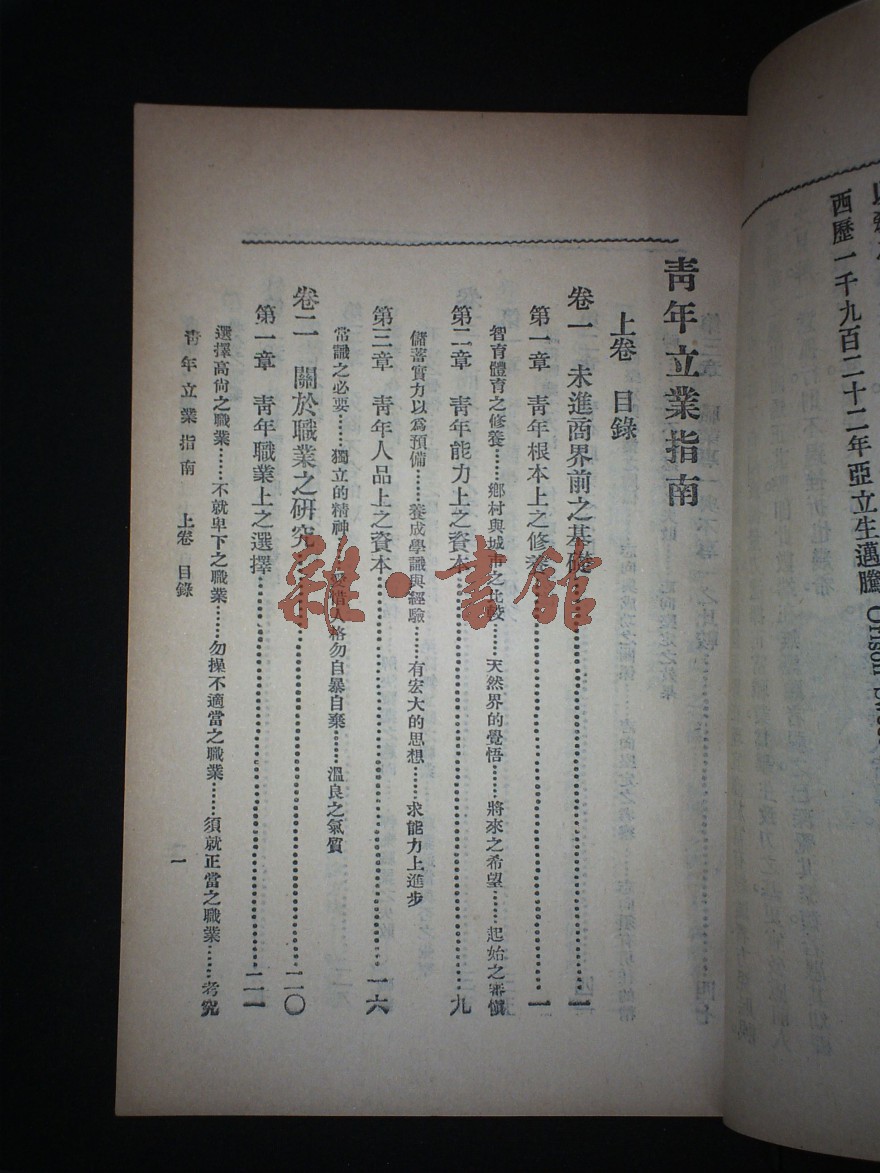 西歷一千九百二十二年亞立生邁騰
青年立業指南
上卷 目錄
卷一 未進商界前之基礎……一
第一章 青年根本上之修養……一
智育體育之修養……鄉村與城市之比較……天然界的覺悟……將來之希望……起始之審愼
第二章 青年能力上之資本……九
儲蓄實力以爲預備……養成學識與經驗……有宏大的思想……求能力上進步
第三章 青年人品上之資本……一六
常識之必要……獨立的精神……愛惜人格勿自暴自棄……溫良之氣質
卷二 關於職業之研究……二〇
第一章 青年職業上之選擇……二一
選擇高尙之職業……不就卑下之職業……勿操不適當之職業……須就正當之職業……考究
青年立業指南 上卷 目錄 一
雜·書館